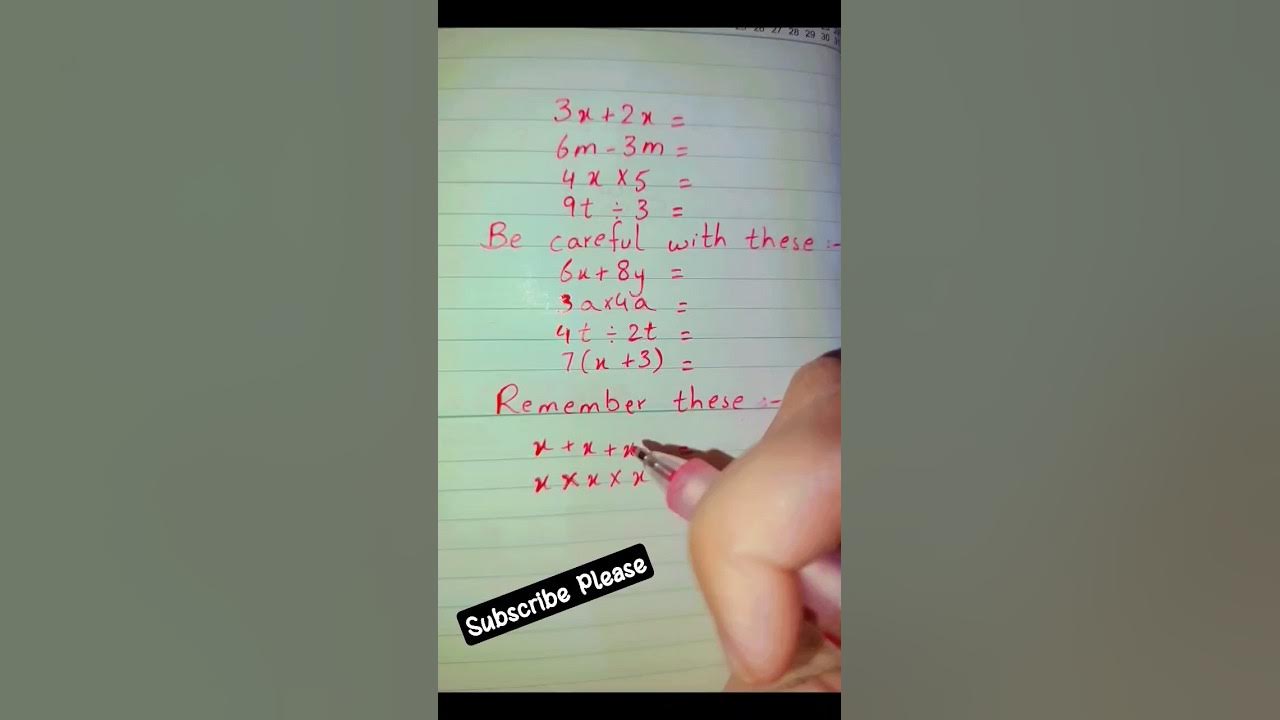 26 27 28 29 30
3x + 2x =
6m - 3m =
4x × 5 =
9t ÷ 3 =
Be careful with these :-
6x + 8y =
3a × 4a =
4t ÷ 2t =
7(x + 3) =
Remember these :-
x + x + x =
x × x × x
Subscribe Please